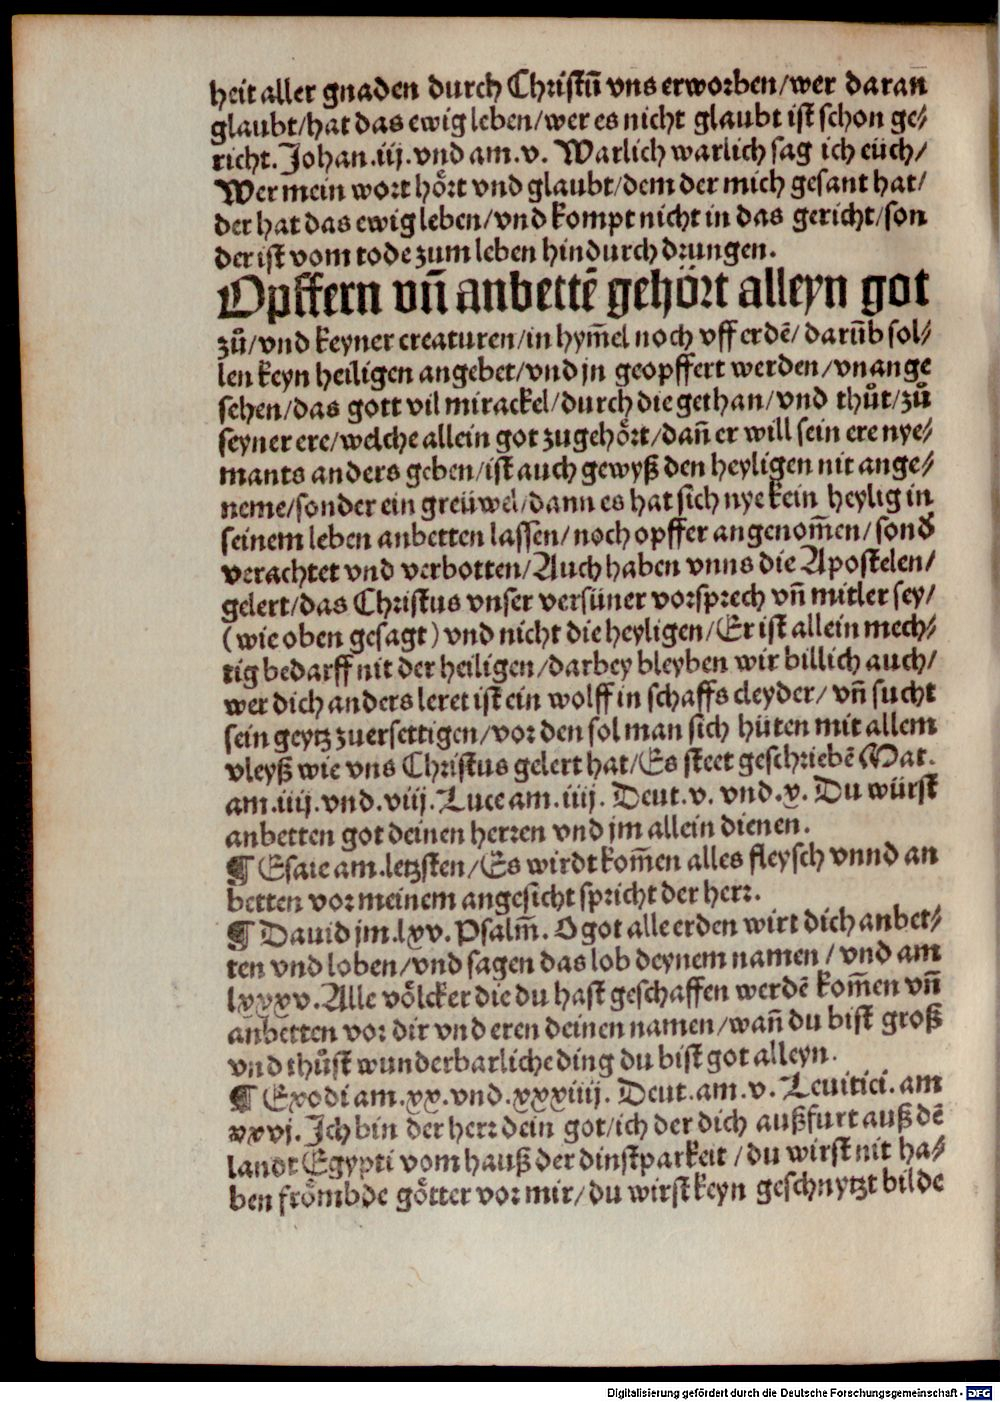 heit aller gnaden durch Christū vns erworben/wer daran
glaubt/hat das ewig leben/wer es nicht glaubt ist schon ge⸗
richt. Johan.iij.vnd am.v. Warlich warlich sag ich eüch/
Wer mein wort hoͤrt vnd glaubt/dem der mich gesant hat/
der hat das ewig leben/vnd kompt nicht in das gericht/son
der ist vom tode zum leben hindurch drungen.
Opffern vn̄ anbettē gehoͤrt alleyn got
zuͦ/vnd keyner creaturen/in hym̄el noch vff erdē/darūb sol⸗
len keyn heiligen angebet/vnd jn geopffert werden/vnange
sehen/das gott vil mirackel/durch die gethan/vnd thuͦt/zuͦ
seyner ere/welche allein got zugehoͤrt/dan̄ er will sein ere nye⸗
mants anders geben/ist auch gewyß den heyligen nit ange⸗
neme/sonder ein greüwel/dann es hat sich nye kein heylig in
seinem leben anbetten lassen/noch opffer angenom̄en/sond̄
verachtet vnd verbotten/Auch haben vnns die Apostelen/
gelert/das Christus vnser versüner vorsprech vn̄ mitler sey/
(wie oben gesagt) vnd nicht die heyligen/Er ist allein mech⸗
tig bedarff nit der heiligen/darbey bleyben wir billich auch/
wer dich anders leret ist ein wolff in schaffs cleyder/vn̄ sucht
sein geytz zuersettigen/vor den sol man sich hüten mit allem
vleyß wie vns Christus gelert hat/Es steet geschriebē Mat.
am.iiij.vnd.viij.Luce am.iiij. Deut.v. vnd.x. Du würst
anbetten got deinen herren vnd jm allein dienen.
¶ Esaie am.letzsten/Es wirdt kom̄en alles fleysch vnnd an
betten vor meinem angesicht spricht der herr.
¶ Dauid jm.lxv. Psalm̄. O got alle erden wirt dich anbet⸗
ten vnd loben/vnd sagen das lob deynem namen/vnd am
lxxxv. Alle voͤlcker die du hast geschaffen werdē kom̄en vn̄
anbetten vor dir vnd eren deinen namen/wan̄ du bist groß
vnd thuͦst wunderbarliche ding du bist got alleyn.
¶ Exodi am.xx.vnd.xxxiiij. Deut.am.v. Leuitici.am
xxvj. Ich bin der herr dein got/ich der dich außfurt auß dē
landt Egypti vom hauß der dinstparkeit/du wirst nit ha⸗
ben froͤmbde goͤtter vor mir/du wirst keyn geschnytzt bilde
Digitalisierung gefördert durch die Deutsche Forschungsgemeinschaft - DFG